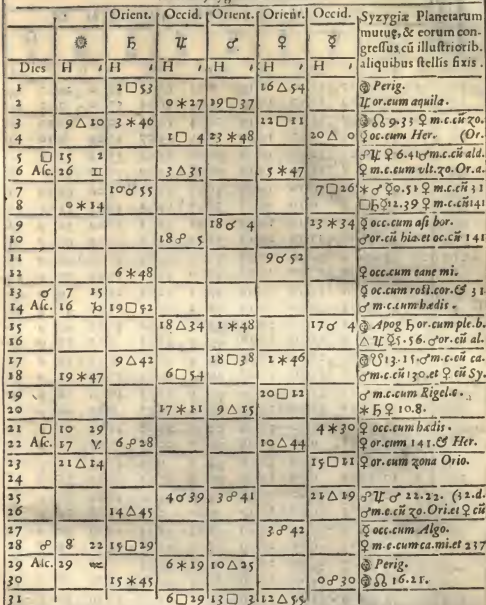 Orient. Occid. Orient. Orient. Occid. Syzygiæ Planetarum
☉ ♄ ♃ ♂ ♀ ☿ mutuę, & eorum con-
gressus cū illustriorib.
Dies H ' H ' H ' H ' H ' H ' aliquibus stellis fixis.
1 2 □ 53 16 △ 54 Perig.
2 0 ✶ 27 19 □ 37 ♃ or. cum aquila.
3 9 △ 10 3 ✶ 46 12 □ 11 ☊ 9.33 ♀ m.c.cū zo.
4 1 □ 4 23 ✶ 48 20 △ 0 ☿ oc. cum Her. (Or.
5 □ 15 2 ☍ ♃ ♀ 6.41 ♂ m.c.cū ald.
6 Asc. 26 ♊ 3 △ 35 5 ✶ 47 ♀ m.c.cum vlt. zo. Or. a.
7 10 ☌ 55 7 □ 26 ✶ ♂ ☿ 0.51 ♀ m.c.cū 31
8 0 ✶ 14 □ ♄ ☿ 12.39 ♀ m.c.cū 141
9 18 ☌ 4 23 ✶ 34 ☿ occ. cum asi bor.
10 18 ☍ 5 ♂ or. cū hia. et oc. cū 141
11 9 ☌ 52
12 6 ✶ 48 ♀ occ. cum cane mi.
13 ☌ 7 15 ☿ oc. cum rost. cor. & 31
14 Asc. 16 ♑ 19 □ 52 ♂ m.c.cum hædis.
15 18 △ 34 1 ✶ 48 17 ☌ 4 Apog ♄ or. cum ple. b.
16 △ ♃ ☿ 5.56. ♂ or. cū al.
17 9 △ 42 18 □ 38 1 ✶ 46 ☋ 13.15. ♂ m.c.cū ca.
18 19 ✶ 47 6 □ 54 ♂ m.c.cū 130. et ♀ cū Sy.
19 20 □ 12 ♂ m.c.cum Rigel. e.
20 17 ✶ 11 9 △ 15 ✶ ♄ ♀ 10.8.
21 □ 10 29 4 ✶ 30 ♀ occ. cum hædis.
22 Asc. 17 ♈ 6 ☍ 28 10 △ 44 ♀ or. cum 141. & Her.
23 21 △ 14 15 □ 11 ♀ or. cum zona Orio.
24
25 4 ☌ 39 3 ☍ 41 21 △ 19 ☍ ♃ ♂ 22.22. (32.d.
26 14 △ 45 ♂ m.c.cū zo. Ori. et ♀ cū
27 3 ☍ 42 ☿ occ. cum Algo.
28 ☍ 8 22 15 □ 29 ♀ m.c.cum ca. mi. et 237
29 Asc. 29 ♒ 6 ✶ 19 10 △ 25 Perig.
30 15 ✶ 45 0 ☍ 30 ☊ 16.21.
31 6 □ 29 13 □ 3 12 △ 55